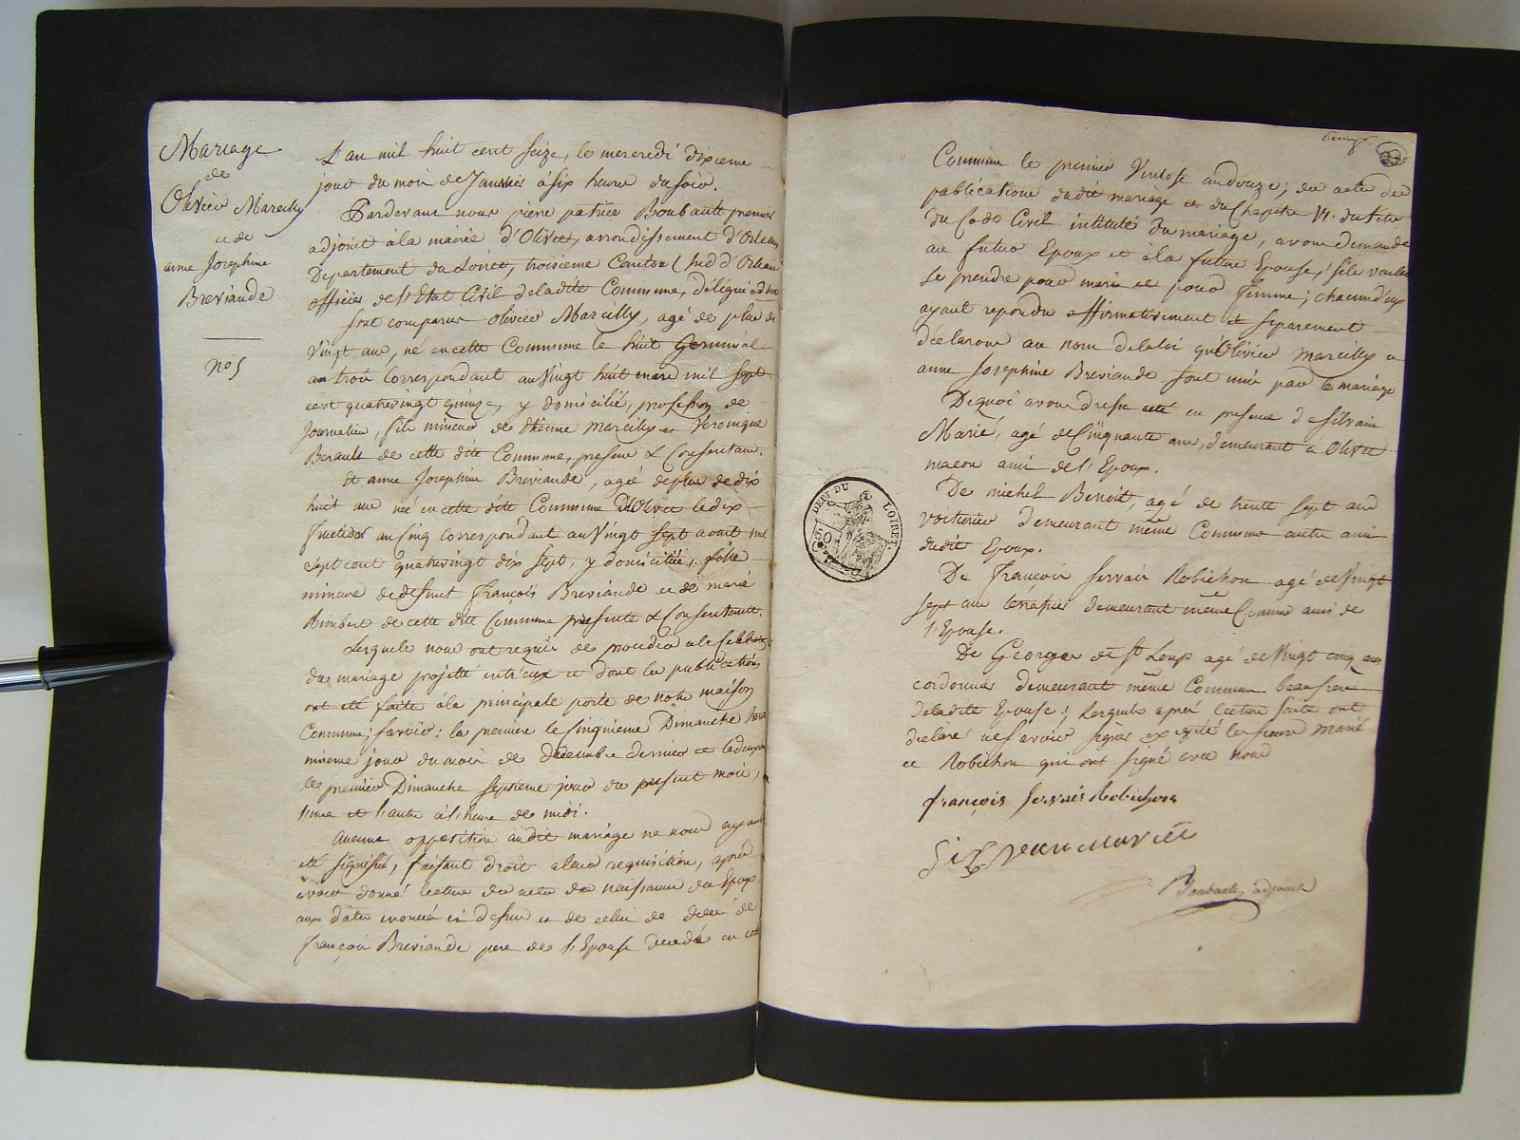 Mariage
de
Olivier Marcilly
et de
anne Josephine
Breviande
nº 5
L'an mil huit cent seize, le mercredi dixieme
jour du mois de Janvier à six heures du soir.
Pardevant nous pierre patrice Boubault premier
adjoint à la mairie d'Olivet, arrondissement d'Orleans
Departement du Loiret, troisieme Canton (sud d'Orleans
officier de l'Etat Civil de ladite Commune, délégué
sont comparus Olivier Marcilly, agé de plus de
Vingt ans, né en cette Commune le huit Germinal
an trois correspondant au Vingt huit mars mil sept
cent quatrevingt quinze, y domicilié, profession de
Journalier, fils mineur de Etienne Marcilly et Veronique
Berault de cette dite Commune, presens & Consentans.
Et anne Josephine Breviande, agée de plus de dix
huit ans née en cette dite Commune d'Olivet le dix
fructidor an cinq correspondant au Vingt sept aout mil
sept cent quatrevingt dix sept, y domiciliée, fille
mineure de defunt François Breviande et de marie
Rimbert de cette dite Commune presente & Consentante.
Lesquels nous ont requis de proceder à la Celebration
du mariage projetté entr'eux et dont les publications
ont été faites à la principale porte de notre maison
Commune; savoir: la premiere le cinquieme Dimanche
unieme jour du mois de decembre dernier et la deuxieme
le premier Dimanche septieme jour du présent mois,
l'une et l'autre à l'heure de midi.
Aucune opposition audit mariage ne nous ayant
été signifiée, faisant droit à leur requisition, après
avoir donné lecture des actes de naissance des Epoux
aux dates enoncées ci dessus et de celui de décès de
françois Breviande pere de l'Epouse decedé en cette
Commune le premier Ventose an douze; des actes de
publications dudit mariage et du Chapitre VI. du titre
du Code Civil intitulé du mariage, avons demandé
au futur Epoux et à la future Epouse, s'ils veulent
se prendre pour mari et pour femme; chacun d'eux
ayant repondu affirmativement et separement
déclarons au nom de la loi qu'Olivier Marcilly et
anne Josephine Breviande sont unis par le mariage
De quoi avons dressé acte en presence de Silvain
Marié, agé de Cinquante ans, demeurant à Olivet
macon ami de l'Epoux.
De michel Benoit, agé de trente sept ans
voiturier demeurant même Commune autre ami
dudit Epoux.
De François Servais Robichon agé de Vingt
sept ans demeurant même Comune ami de
l'Epouse.
De George de St Loup agé de Vingt cinq ans
cordonnier demeurant même Commune beaufrere
de ladite Epouse; Lesquels après lecture faite ont
déclaré ne savoir signer excepté les sieurs Marié
et Robichon qui ont signé avec nous
françois Servais Robichon
Boubault, adjoint
DEPT DU LOIRET.